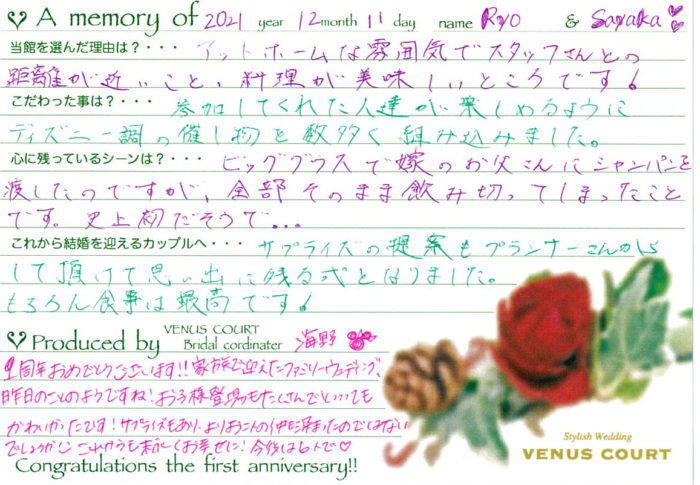 A memory of 2021 year 12 month 11 day name Ryo & Sayaka
当館を選んだ理由は？・・・ アットホームな雰囲気でスタッフさんとの
距離が近いこと、料理が美味しいところです！
こだわった事は？・・・ 参加してくれた人達が楽しめるように
ディズニー調の催し物を数多く組み込みました。
心に残っているシーンは？・・・ ビッググラスで嫁のお父さんにシャンパンを
渡したのですが、全部そのまま飲み切ってしまったこと
です。史上初だそうで…
これから結婚を迎えるカップルへ・・・ サプライズの提案もプランナーさんから
して頂けて思い出に残る式となりました。
もちろん食事は最高です！
Produced by VENUS COURT Bridal cordinater 海野
1周年おめでとうございます!! 家族で迎えたファミリーウェディング、
昨日のことのようですね！お子様登場もたくさんでとっても
かわいかったです！サプライズもあり、よりお二人の仲が深まったのではない
でしょうか♡これからも末永くお幸せに！今後は6人で♡
Congratulations the first anniversary!!
Stylish Wedding
VENUS COURT